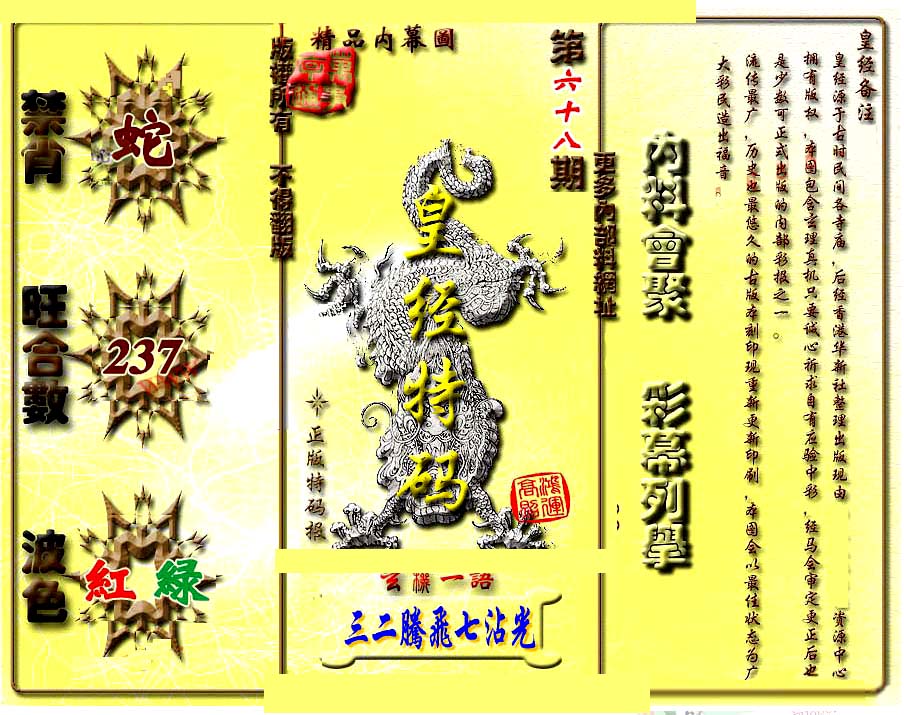 禁肖
蛇
旺合數
237
波色
紅 綠
精品内幕圖
版權所有 不得翻版
第六十八期
皇经特码
正版特码报
鴻運高照
玄機一語
三二騰飛七沾光
更多内部料網址
内料會聚
彩幕列擧
皇经备注
皇经源于古时民间各寺庙，后经香港华新社整理出版现由 资源中心
拥有版权，本图包含玄理真机只要诚心祈求自有应验中彩，经马会审定更正后也
是少数可正式出版的内部彩报之一。
流传最广，历史也最悠久的古版本刻印现重新更新印刷，本图会以最佳状态为广
大彩民造出福音